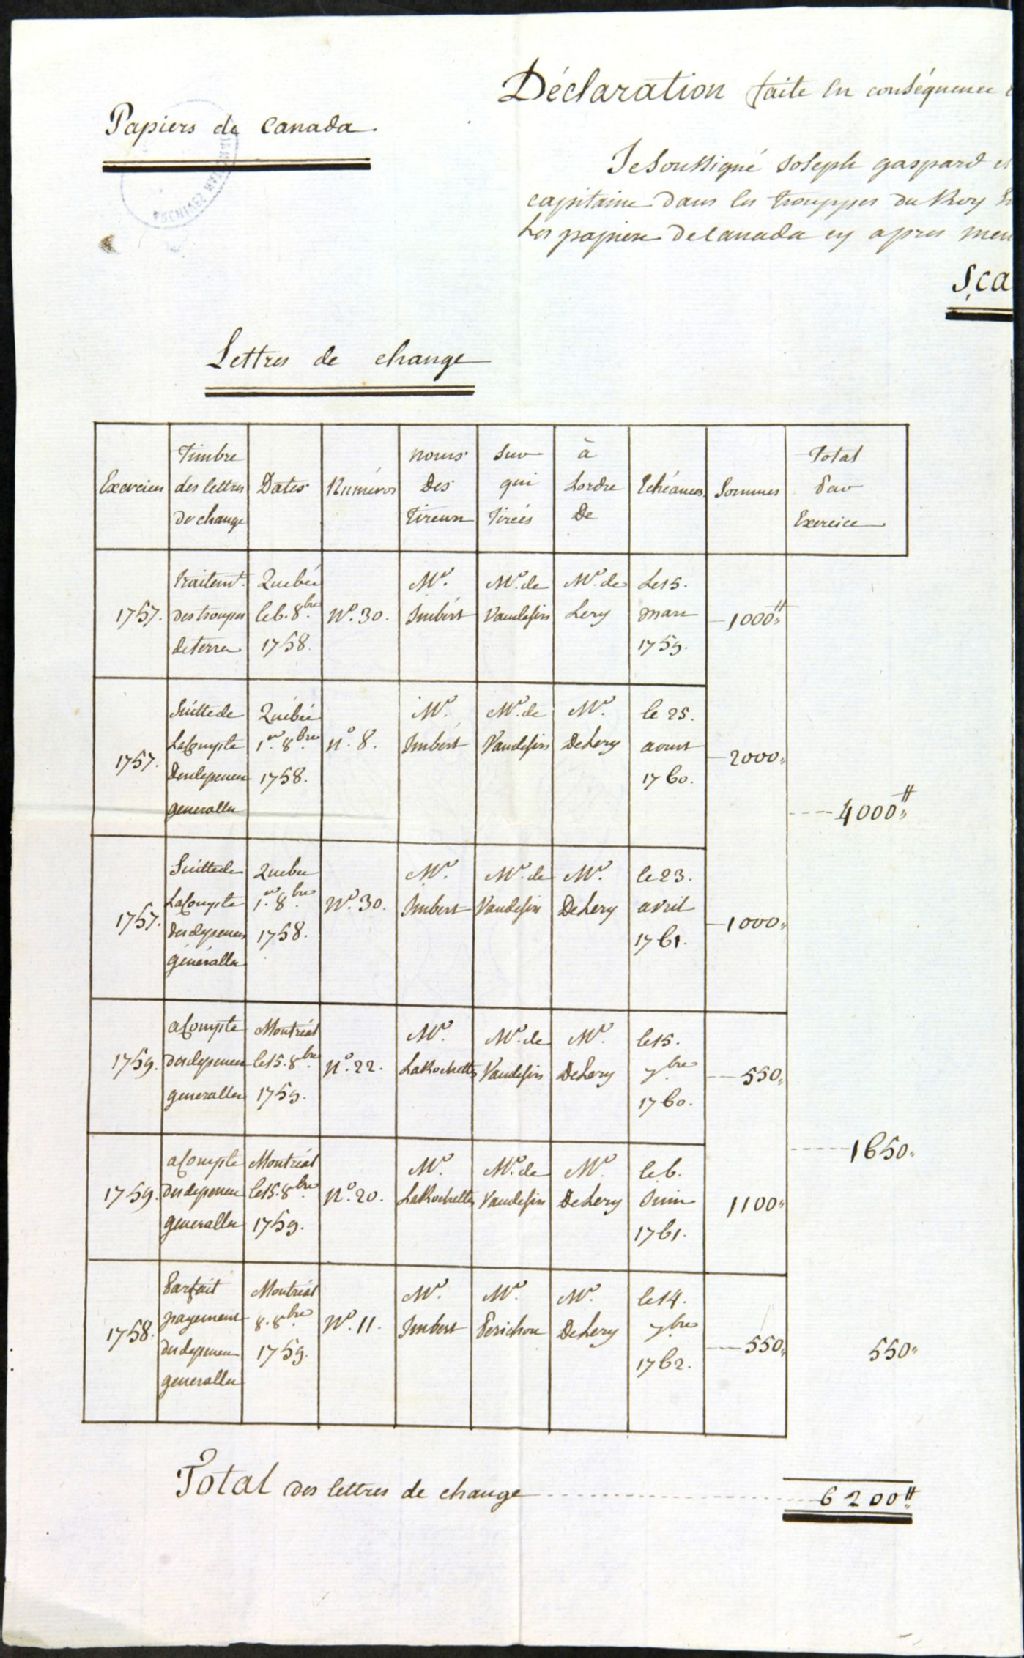 Papiers de Canada.
Déclaration faite en conséquence
Je Soussigné Joseph gaspard
capitaine dans les trouppes du Roy
Les papiers de Canada cy apres men
Sça
Lettres de change
Exercices
Timbre
des lettres
de change
Dates
Numéros
noms
Des
Tireurs
Sur
qui
Tirées
à
Lordre
De
Echéances
Sommes
Total
Par
Exercice
1757.
Traitemt.
des troupes
de terre
Quebec
le 6. 8bre
1758.
No. 30.
Mr.
Imbert
Mr. de
Vaudesir
Mr. de
Lery
Le 15.
mars
1759
1000ff
1757.
Suitte de
La Compte
Des depenses
generalles
Quebec
1er 8bre
1758.
no. 8.
Mr.
Imbert
Mr. de
Vaudesir
Mr.
DeLery
le 25.
aoust
1760.
2000"
4000ff
1757.
Suitte de
La Compte
Des depenses
généralles
Quebec
1er 8bre
1758.
No. 30.
Mr.
Imbert
Mr. de
Vaudesir
Mr.
DeLery
le 23.
avril
1761.
1000"
1759.
a Compte
des depenses
generalles
Montréal
le 15. 8bre
1759.
No. 22.
Mr.
LaRochette
Mr. de
Vaudesir
Mr.
DeLery
le 15.
7bre
1760.
550"
1650"
1759.
a Compte
des depenses
generalles
Montréal
le 15. 8bre
1759.
No. 20.
Mr.
LaRochette
Mr. de
Vaudesir
Mr.
DeLery
le 6.
Juin
1761.
1100"
1758.
Parfait
payement
des depenses
generalles
Montréal
8. 8bre
1759.
No. 11.
Mr.
Imbert
Mr.
Perichon
Mr.
DeLery
le 14.
7bre
1762.
550"
550"
Total des lettres de change
6200ff